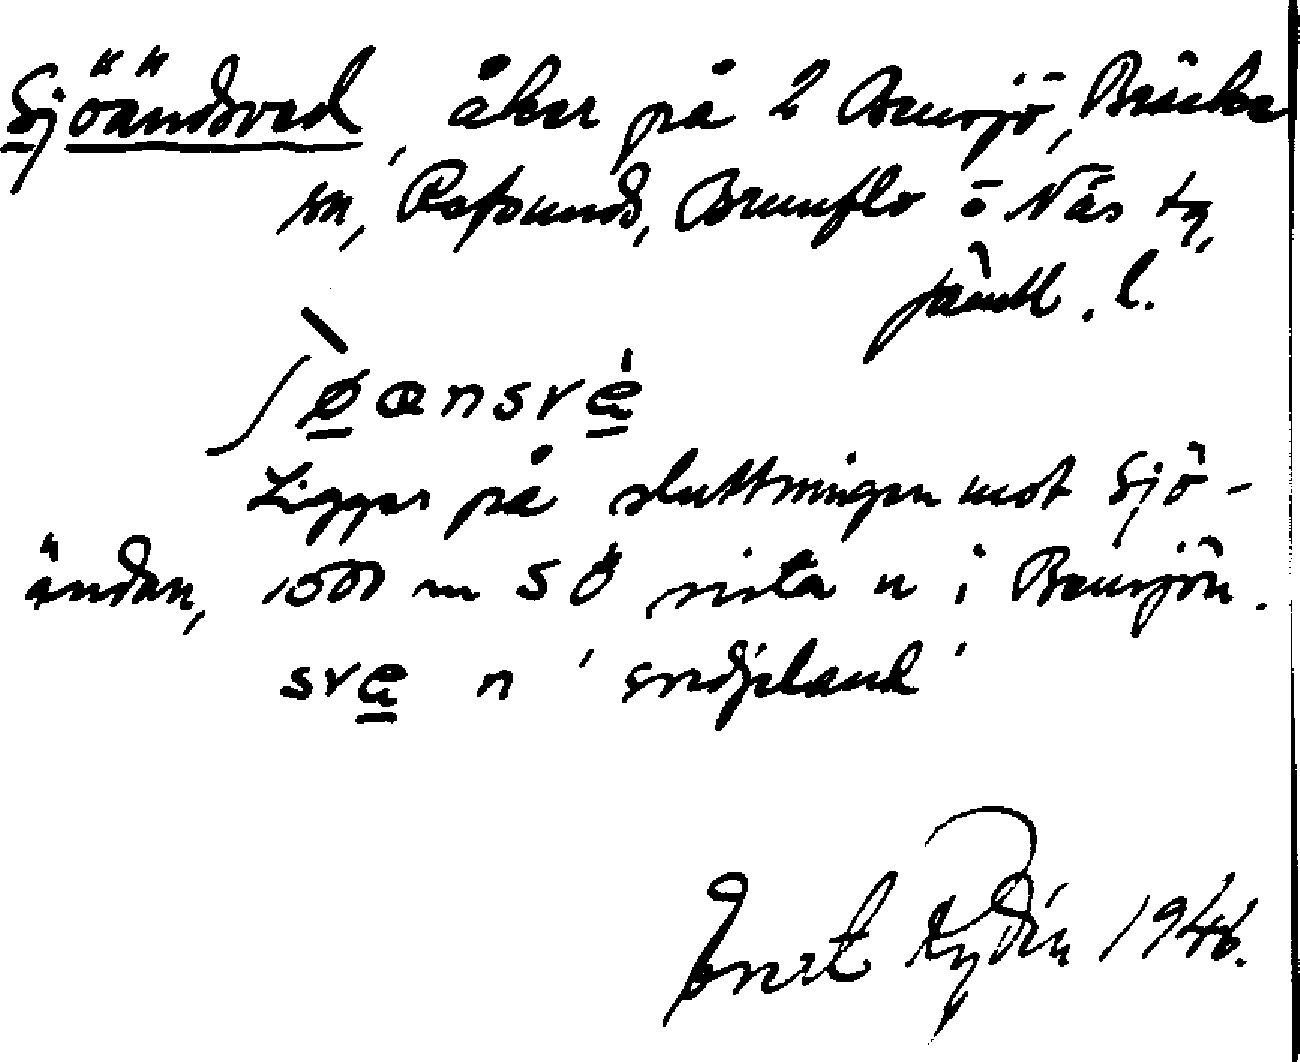 Sjöändsved, åker på 2 Bensjö, Bräcke
sn, Refsunds, Brunflo o Näs tg,
Jämtl. l.
ʃø̀ænsve̍
Ligger på sluttningen mot Sjö-
ändan, 1500 m SÖ sista n i Bensjön.
sve n 'svedjeland'
Ernst Rydén 1946.